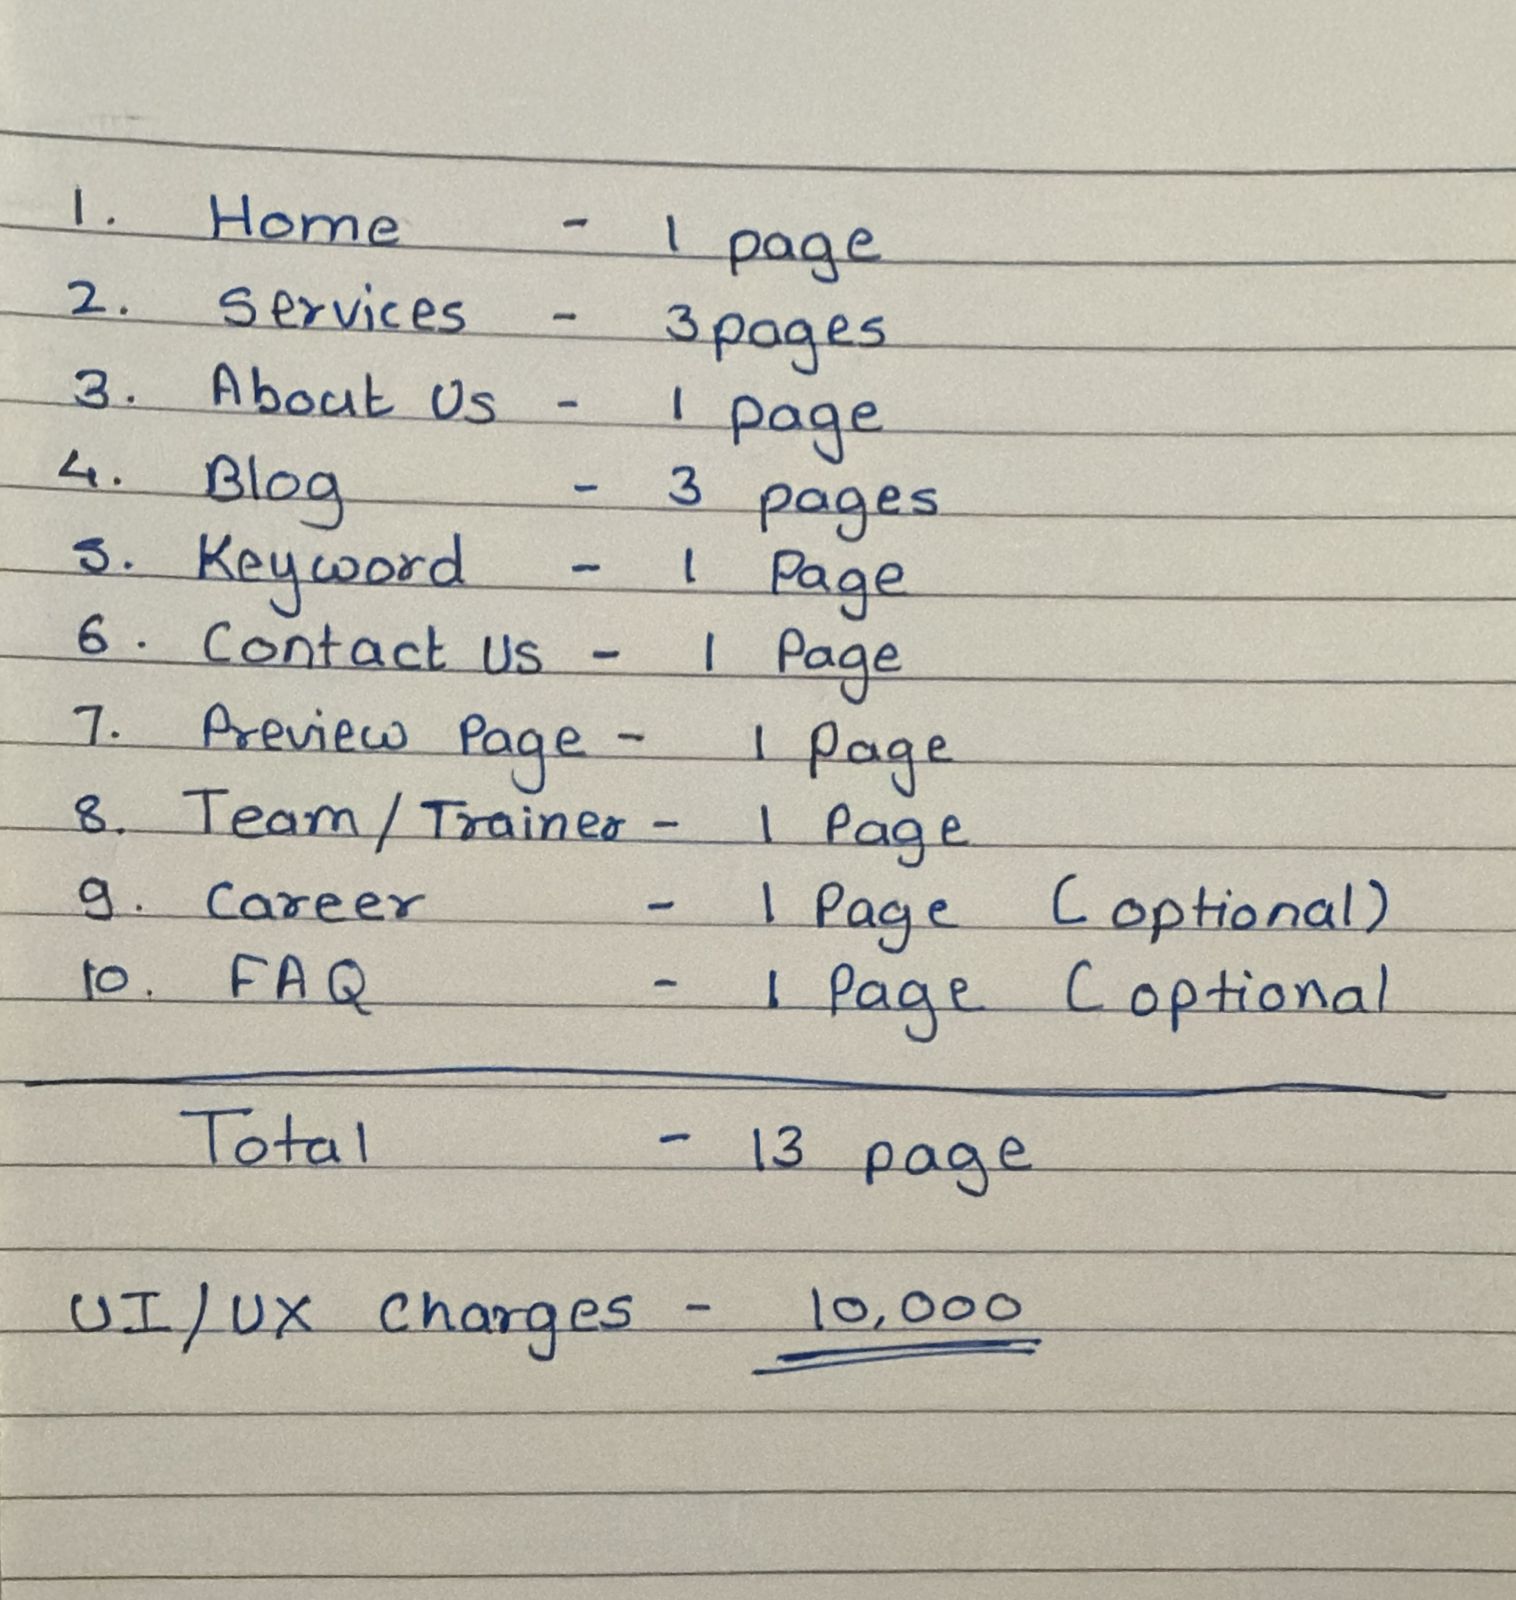 1. Home - 1 page
2. Services - 3 pages
3. About Us - 1 page
4. Blog - 3 pages
5. Keyword - 1 Page
6. Contact Us - 1 Page
7. Preview Page - 1 Page
8. Team/Trainer - 1 Page
9. Career - 1 Page (optional)
10. FAQ - 1 Page (optional
Total - 13 page
UI/UX Charges - 10,000